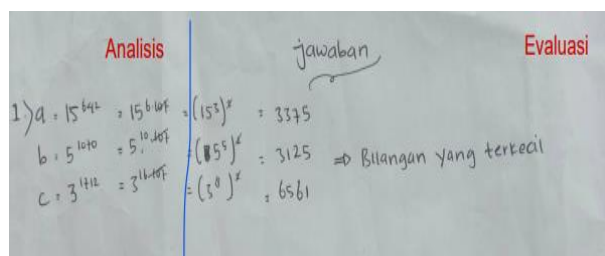 Analisis jawaban Evaluasi
1.) a = 15^642 = 15^6.107 = (15^3)^x = 3375
b = 5^1070 = 5^10.107 = (5^5)^x = 3125 ⇒ Bilangan yang terkecil
c = 3^1712 = 3^16.107 = (3^8)^x = 6561